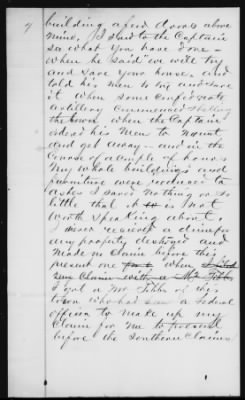 9
building a few doors above
mine, I said to the Captain
see what you have done —
when he said we will try
and save your house, and
told his men to try and save
it when some Confederate
artillery commenced shelling
the town when the Captain
ordered his men to mount
and get away — and in the
course of a couple of hours
my whole buildings and
furniture were reduced to
ashes I saved nothing or so
little that it is not
worth speaking about.
I never received a dime for
any property destroyed and
made no claim before this
present one when I filed
Claim with a Mr Tibbs
I got a Mr Tibbs of this
town who had been a Federal
officer to make up my
Claim for me to present
before the Southern Claims